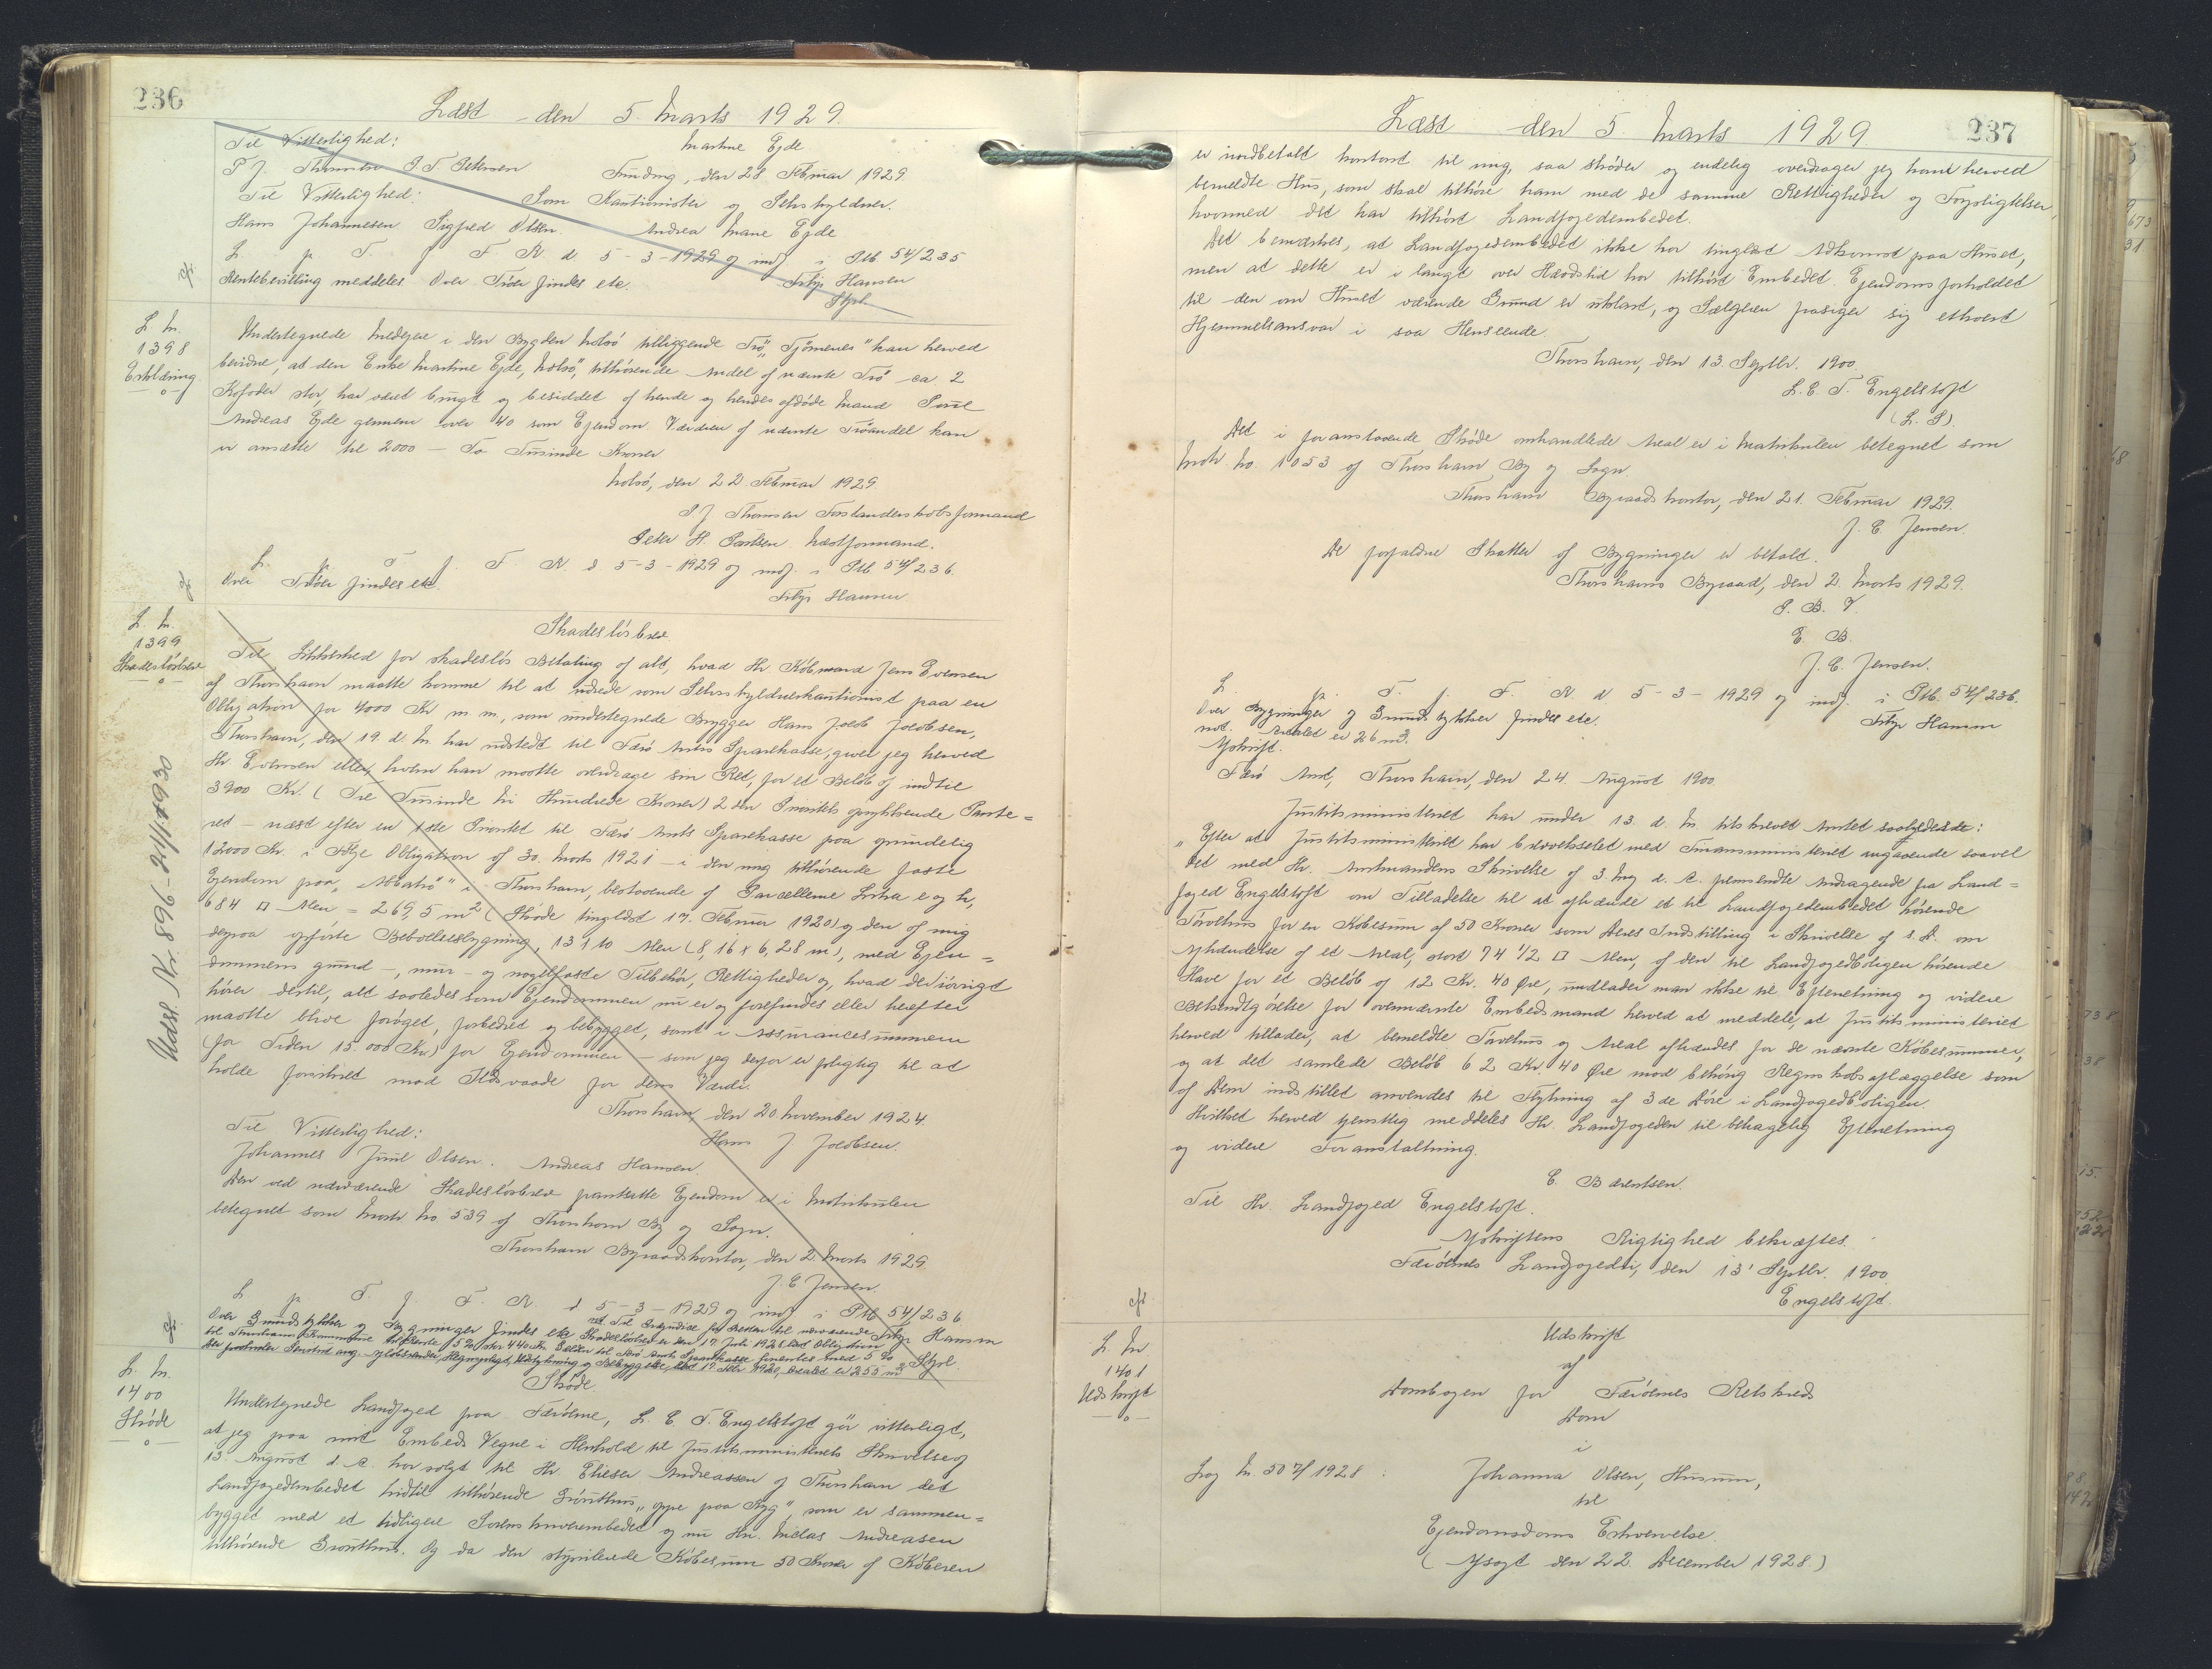 236
Læst den 5. Marts 1929.
Til Vitterlighed: Martine Ejde
P J. Thomsen P. T. Petersen Sanding, den 28. Februar 1929.
Til Vitterlighed: Som Kautionister og Selvskyldner.
Hans Johannesen Sigfred Olsen. Andrea Marie Ejde
L. p. T. f. F. R. d 5-3-1929 og indf. i Ptb 54/235
Rentebevilling meddeles. Over Trøer findes etc. Filip Hansen
Stpl.
L. Nr.
1398
Erklæring
Undertegnede Medejere i den Bygden Nolsö tilliggende Trø, „ kan herved
bevidne, at den Enke Martine Ejde, Nolsö, tilhørende Andel af nævnte Trø ca 2
Kofoder stor, har været brugt og besiddet af hende og hendes afdøde Mand Poul
Andreas Ejde gennem over 40 som Ejendom. Værdien af nævnte Trøandel kan
vi ansætte til 2000 – To Tusinde Kroner
Nolsö, den 22. Februar 1929.
P J Thomsen Forstanderskabsformand
Peter H. Poulsen Næstformand.
L. p. T. f. F. R. d 5-3-1929 og indf. i Ptb 54/236.
Over Trøer findes etc. Filip Hansen
L. Nr.
1399
Skadesløsbrev
Skadesløsbrev
Til Sikkerhed for skadesløs Betaling af alt, hvad Hr. Købmand Jens Evensen
af Thorshavn maatte komme til at udrede som Selvskyldnerkautionist paa en
Obligation for 4000 Kr m.m., som undertegnede Brygger Hans Jacob Jacobsen,
Thorshavn, den 19. d. M. har udstedt til Færø Amts Sparekasse, giver jeg herved
Hr. Evensen eller, hvem han maatte overdrage sin Ret, for et Beløb af indtil
3900 Kr. (Tre Tusinde Ni Hundrede Kroner) 2den Prioritets oprykkende Pante=
ret – næst efter en 1ste Prioritet til Færø Amts Sparekasse paa oprindelig
12000 Kr. i Følge Obligation af 30. Marts 1921 – i den mig tilhørende faste
Ejendom paa „ i Thorshavn, bestaaende af Parcellerne Litra e og h,
684 □ Alen = 269,5 m² (Skøde tinglæst 17. Februar 1920) og den af mig
derpaa opførte Beboelsesbygning, 13 x 10 Alen (8,16 x 6,28 m), med Ejen=
dommens grund-, mur- og nagelfaste Tilbehør, Rettigheder og, hvad der iøvrigt
hører dertil, alt saaledes som Ejendommen nu er og forefindes eller herefter
maatte blive forøget, forbedret og bebygget, samt i Assurancesummen
(for Tiden 15.000 Kr) for Ejendommen – som jeg derfor er pligtig til at
holde forsikret mod Ildsvaade for dens Værdi.
Thorshavn, den 20. November 1924.
Til Vitterlighed: Hans J Jacobsen.
Johannes Juul Olsen. Andreas Hansen.
Den ved nærværende Skadesløsbrev pantsatte Ejendom er i Matrikulen
betegnet som Matr No. 539 af Thorshavn By og Sogn.
Thorshavn Byraadskontor, den 2. Marts 1929.
J. E Jensen.
L. p. T. f. F. R. d 5-3-1929 og indf. i Ptb 54/236
Over Grundstykker og Bygninger findes etc Filip Hansen
Stpl.
L. Nr.
1400
Skøde
Skøde.
Undertegnede Landfoged paa Færøerne, L. E. T. Engelstoft gør vitterligt,
at jeg paa mit Embeds Vegne i Henhold til Justitsministeriets Skrivelse af
13. August d. A. har solgt til Hr. Elieser Andreassen af Thorshavn det
Landfogedembedet hidtil tilhørende Grønthus, „oppe paa Ryg", som er sammen=
bygget med et tidligere Sorenskriverembedet og nu Hr. Niclas Andreasen
tilhørende Grønthus. Og da den stipulerede Købesum 50 Kroner af Køberen
237
Læst den 5. Marts 1929.
er indbetalt kontant til mig, saa skøder og endelig overdrager jeg ham herved
bemeldte Hus, som skal tilhøre ham med de samme Rettigheder og Forpligtelser,
hvormed det har tilhørt Landfogedembedet.
Det bemærkes, at Landfogedembedet ikke har tinglæst Adkomst paa Huset,
men at dette er i langt over Hævdstid har tilhørt Embedet. Ejendomsforholdet
til den om Huset værende Grund er uklart, og Sælgeren frasiger sig ethvert
Hjemmelsansvar i saa Henseende.
Thorshavn, den 13. Septbr. 1900.
L. E. T. Engelstoft
(L. S).
Det i foranstaaende Skøde omhandlede Areal er i Matrikulen betegnet som
Matr. No. 1053 af Thorshavn By og Sogn.
Thorshavn Byraadskontor, den 21. Februar 1929.
J. E. Jensen.
De forfaldne Skatter af Bygninger er betalt.
Thorshavns Byraad, den 2. Marts 1929.
P. B. V.
E. B.
J. E. Jensen.
L. p. T. f. F. R. d 5-3-1929 og indf. i Ptb. 54/236.
Over Bygninger og Grundstykker findes etc. Filip Hansen
not. Arealet er 26 m².
Afskrift.
Færø Amt, Thorshavn, den 24. August 1900.
Justitsministeriet har under 13. d. M. tilskrevet Amtet saaledes:
„Efter at Justitsministeriet har brevvekslet med Finansministeriet angaaende saavel
det med Hr. Amtmandens Skrivelse af 3. Maj d. A. fremsendte Andragende fra Land=
foged Engelstoft om Tilladelse til at afhænde et til Landfogedembedet hørende
Tørvehus for en Købesum af 50 Kroner som Deres Indstilling i Skrivelse af s. D. om
Afhændelse af et Areal, stort 74 1/2 □ Alen, af den til Landfogedboligen hørende
Have for et Beløb af 12 Kr. 40 Øre, undlader man ikke til Efterretning og videre
Bekendtgørelse for ovennævnte Embedsmand herved at meddele, at Justitsministeriet
herved tillader, at bemeldte Tørvehus og Areal afhændes for de nævnte Købesummer,
og at det samlede Beløb 62 Kr. 40 Øre mod behørig Regnskabsaflæggelse som
af Dem indstillet anvendes til Flytning af 3de Døre i Landfogedboligen.
Hvilket herved tjenstlig meddeles Hr. Landfogeden til behagelig Efterretning
og videre Foranstaltning.
E. Bærentsen.
Til Hr. Landfoged Engelstoft.
Afskriftens Rigtighed bekræftes.
Færøernes Landfogedi, den 13' Septbr. 1900.
Engelstoft.
L. Nr.
1401
Udskrift
Udskrift
af
Dombogen for Færøernes Retskreds
Dom
i
Sag Nr. 507/1928: Johanna Olsen, Husum,
til
Ejendomsdoms Erhvervelse.
(Afsagt den 22. December 1928)